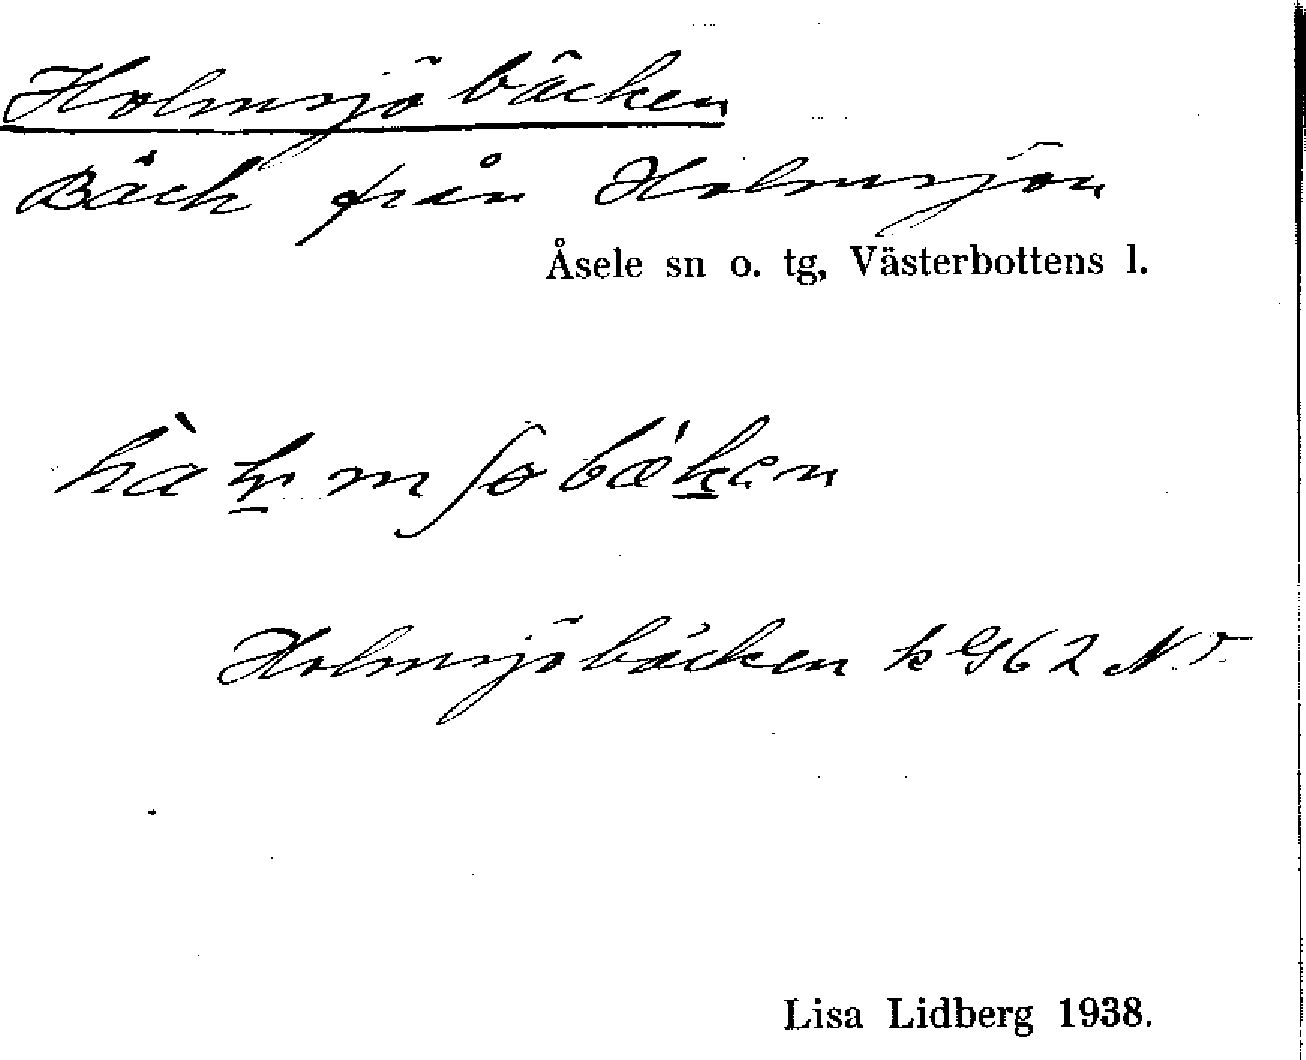 Holmsjöbäcken
Bäck från Holmsjön
Åsele sn o. tg, Västerbottens l.
Holmsjöbäcken k G62 NV
Lisa Lidberg 1938.